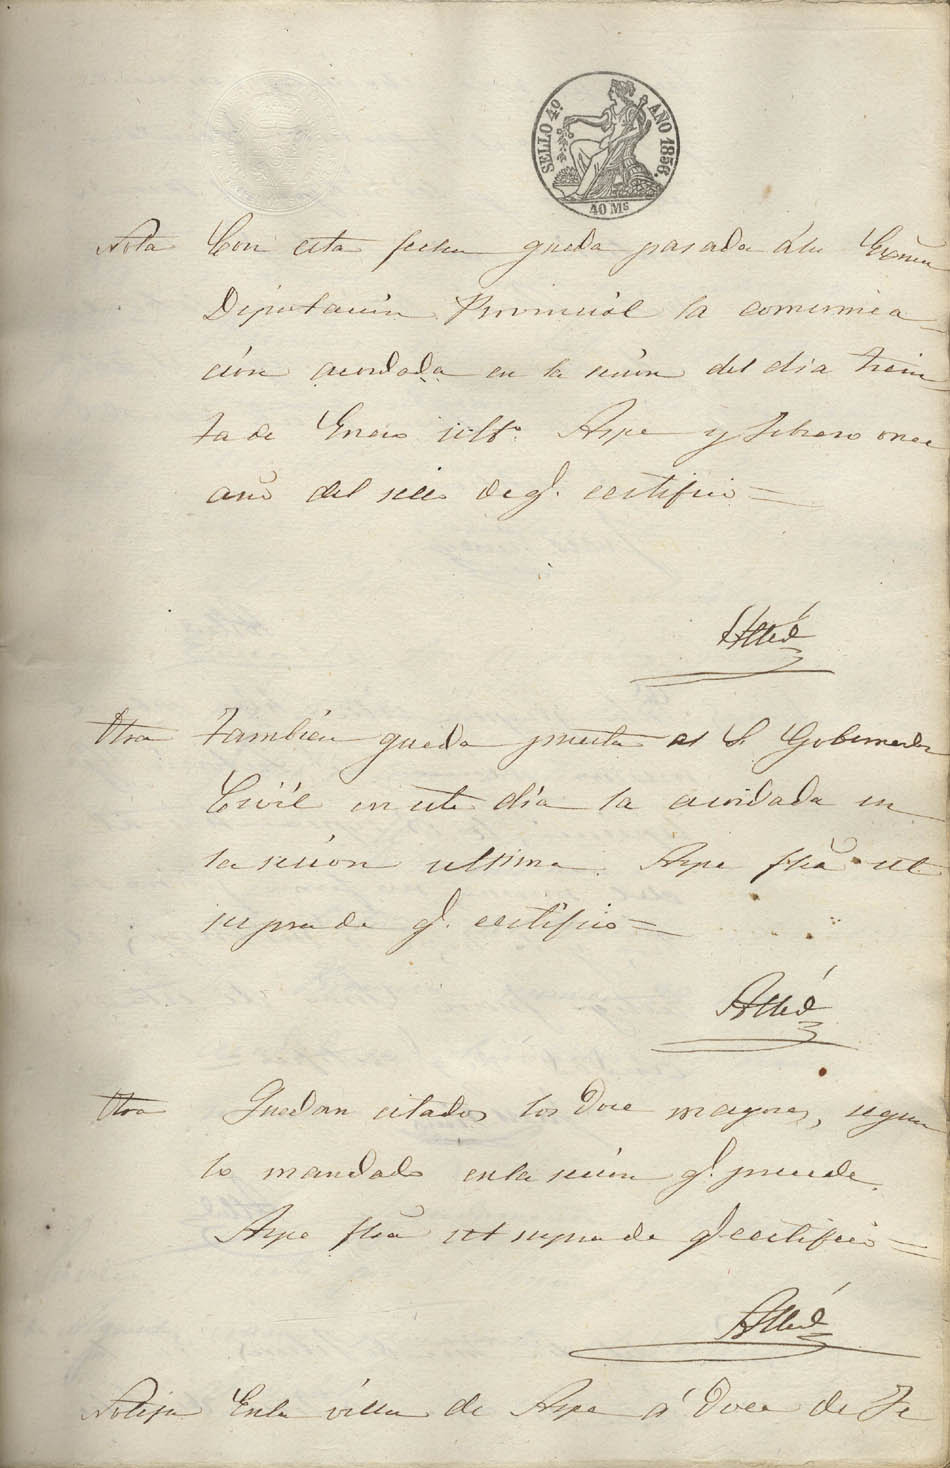 SELLO 4º. AÑO 1856.
40 Ms
Nota Con esta fecha queda pasada á la Exma
Diputación Provincial la comunica=
ción acordada en la sesion del dia trein=
ta de Enero ulto. Aspe y Febrero once
año del sello de q. certifico=
Otra También queda puesta al S. Gobernador
Civil en este día la acordada en
la sesion ultima. Aspe fha ut
supra de q. certifico=
Otra Quedan citados los Doce mayores, segun
lo mandado en la sesion q. precede.
Aspe fha ut supra de q. certifico=
En la villa de Aspe á Doce de Fe